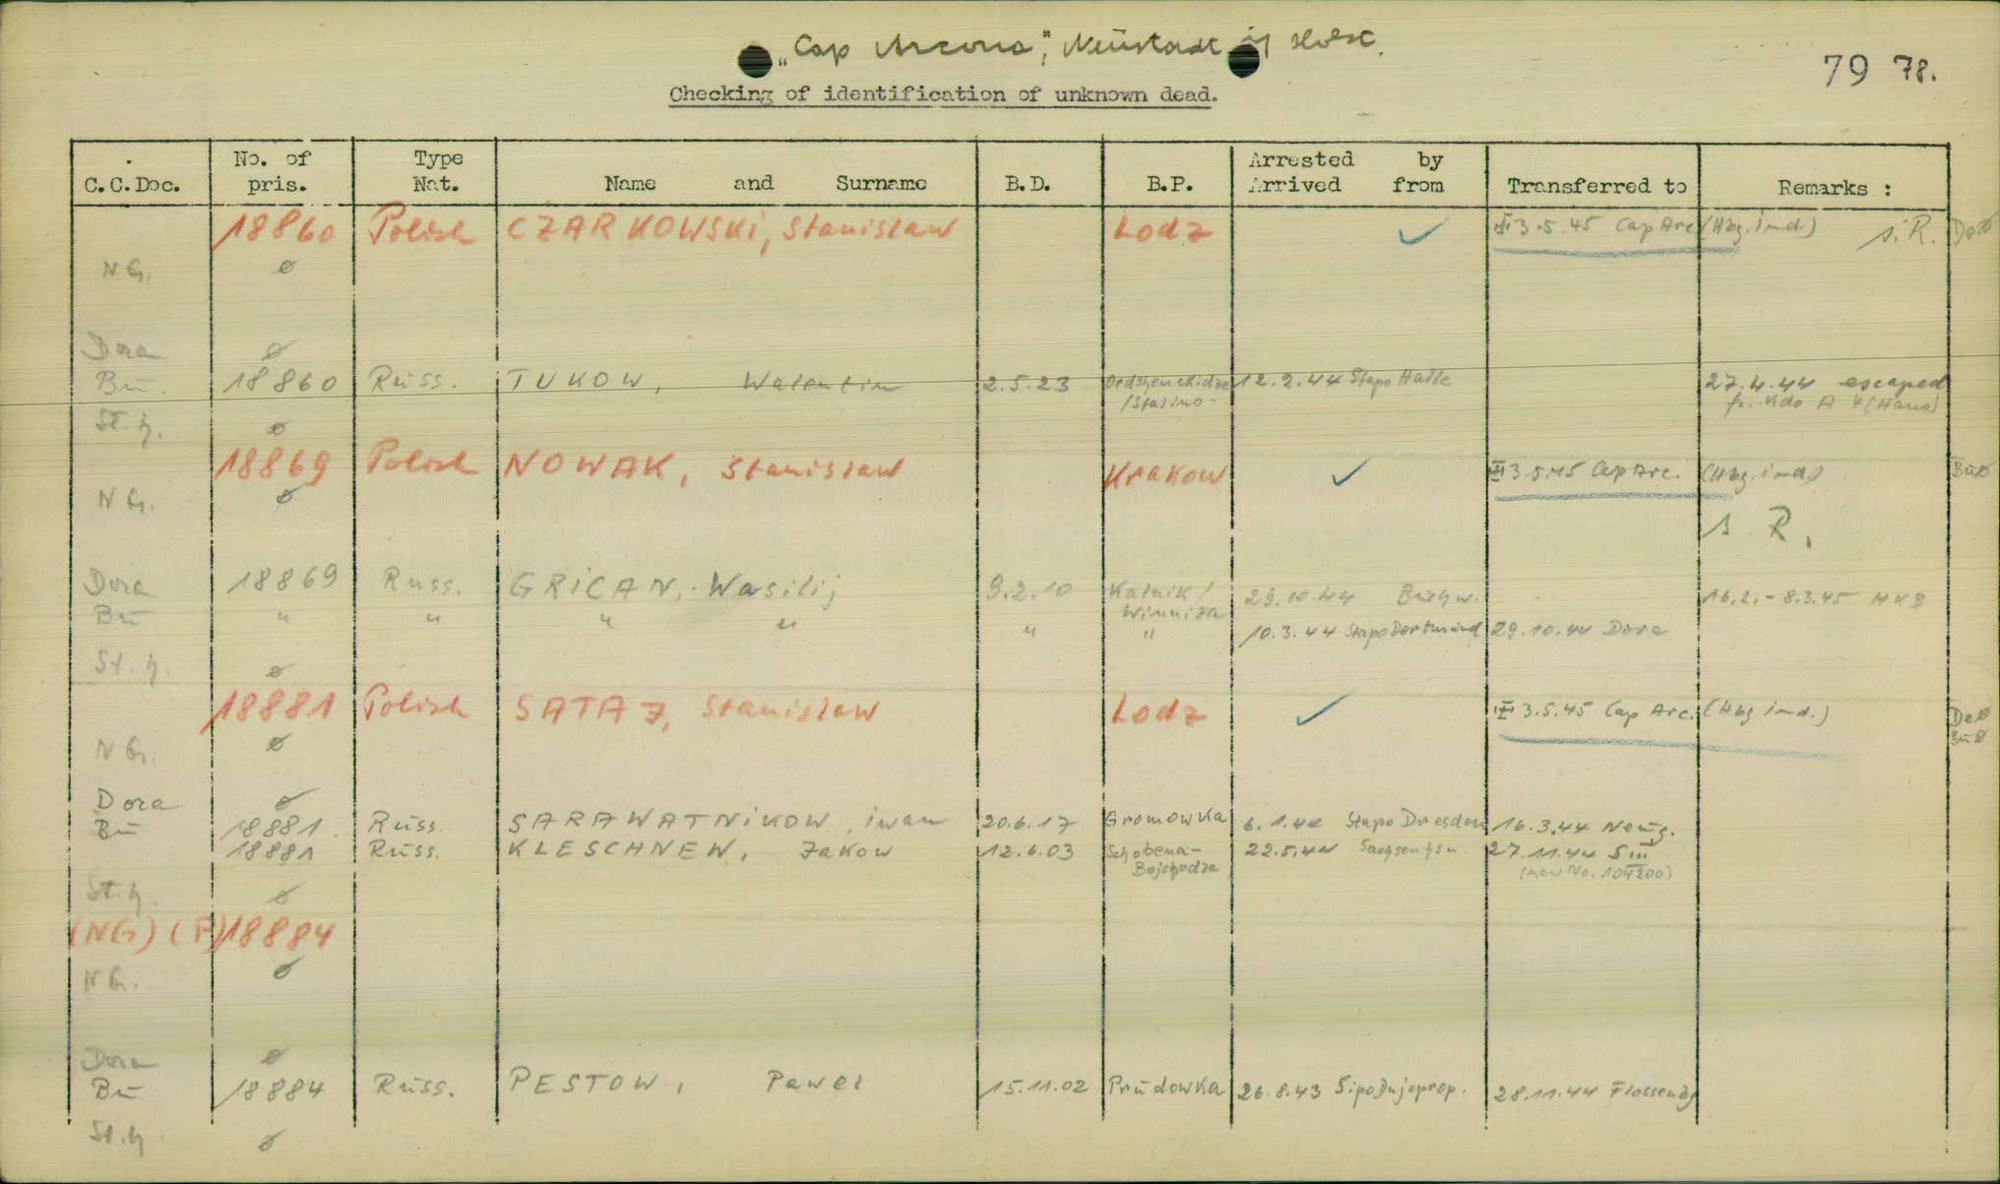 „Cap Arcona", Neustadt i/ Holst.
79 78.
Checking of identification of unknown dead.
C.C.Doc. No. of pris. Type Nat. Name and Surname B.D. B.P. Arrested by Arrived from Transferred to Remarks :
18860 Polish CZARKOWSKI, Stanislaw Lodz ✓ III 3.5.45 Cap Arc. (Hbg. ind.) s. R. Do ø
N G. ø
Dora ø
Bū. 18860 Russ. TUKOW, Walentin 2.5.23 Ordshenikidze /Stalino- 12.2.44 Stapo Halle 27.4.44 escaped fr. Kdo A 4 (Hans)
St. h. ø
18869 Polish NOWAK, Stanislaw Krakow ✓ III 3.5.45 Cap Arc. (Hbg. ind) Bū ø
N G. ø
s. R.
Dora 18869 Russ. GRICAN, Wasilij 9.2.10 Kalnik / Winniza 29.10.44 Buchw. 16.2.- 8.3.45 HKB
Bū " " " " " " 10.3.44 Stapo Dortmund 29.10.44 Dora
St. h. ø
18881 Polish SATAJ, Stanislaw Lodz ✓ III 3.5.45 Cap Arc. (Hbg ind.) Do ø Bū ø
N G. ø
Dora ø
Bū 18881. Russ. SARAWATNIKOW, iwan 20.6.17 Gromowka 6.1.44 Stapo Dresden 16.3.44 Neug.
18881 Russ. KLESCHNEW, Jakow 12.6.03 22.5.44 Sachsenhsn 27.11.44 S III
St. h. ø
(NG) (P) 18884
N G. ø
Dora ø
Bū 18884 Russ. PESTOW, Pawel 15.11.02 Prudowka 26.8.43 Sipo Dnjeprop. 28.11.44 Flossenbg
St. h ø